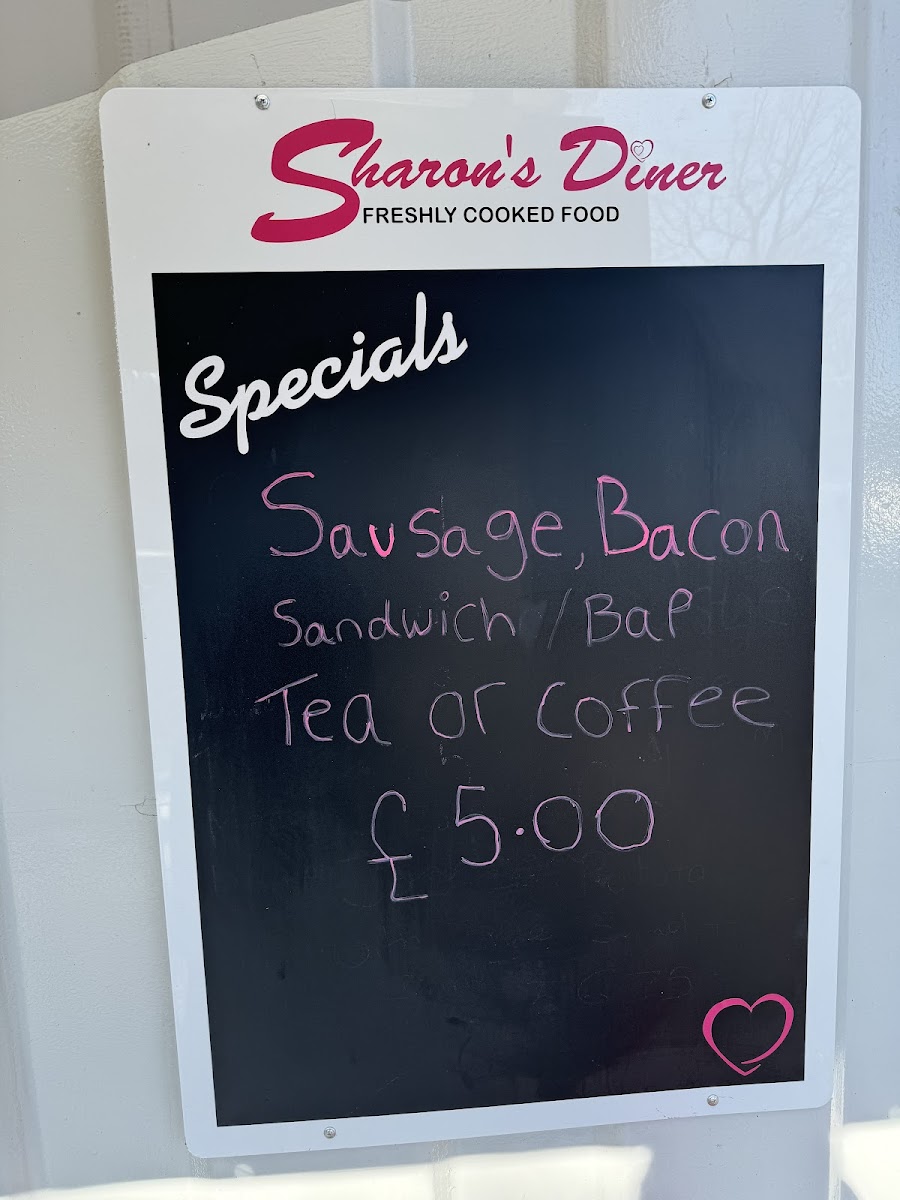 Sharon's Diner
FRESHLY COOKED FOOD
Specials
Sausage, Bacon
Sandwich / Bap
Tea or Coffee
£5.00